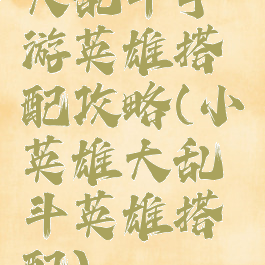 斗手
游英雄搭
配攻略(小
英雄大乱
斗英雄搭
配)